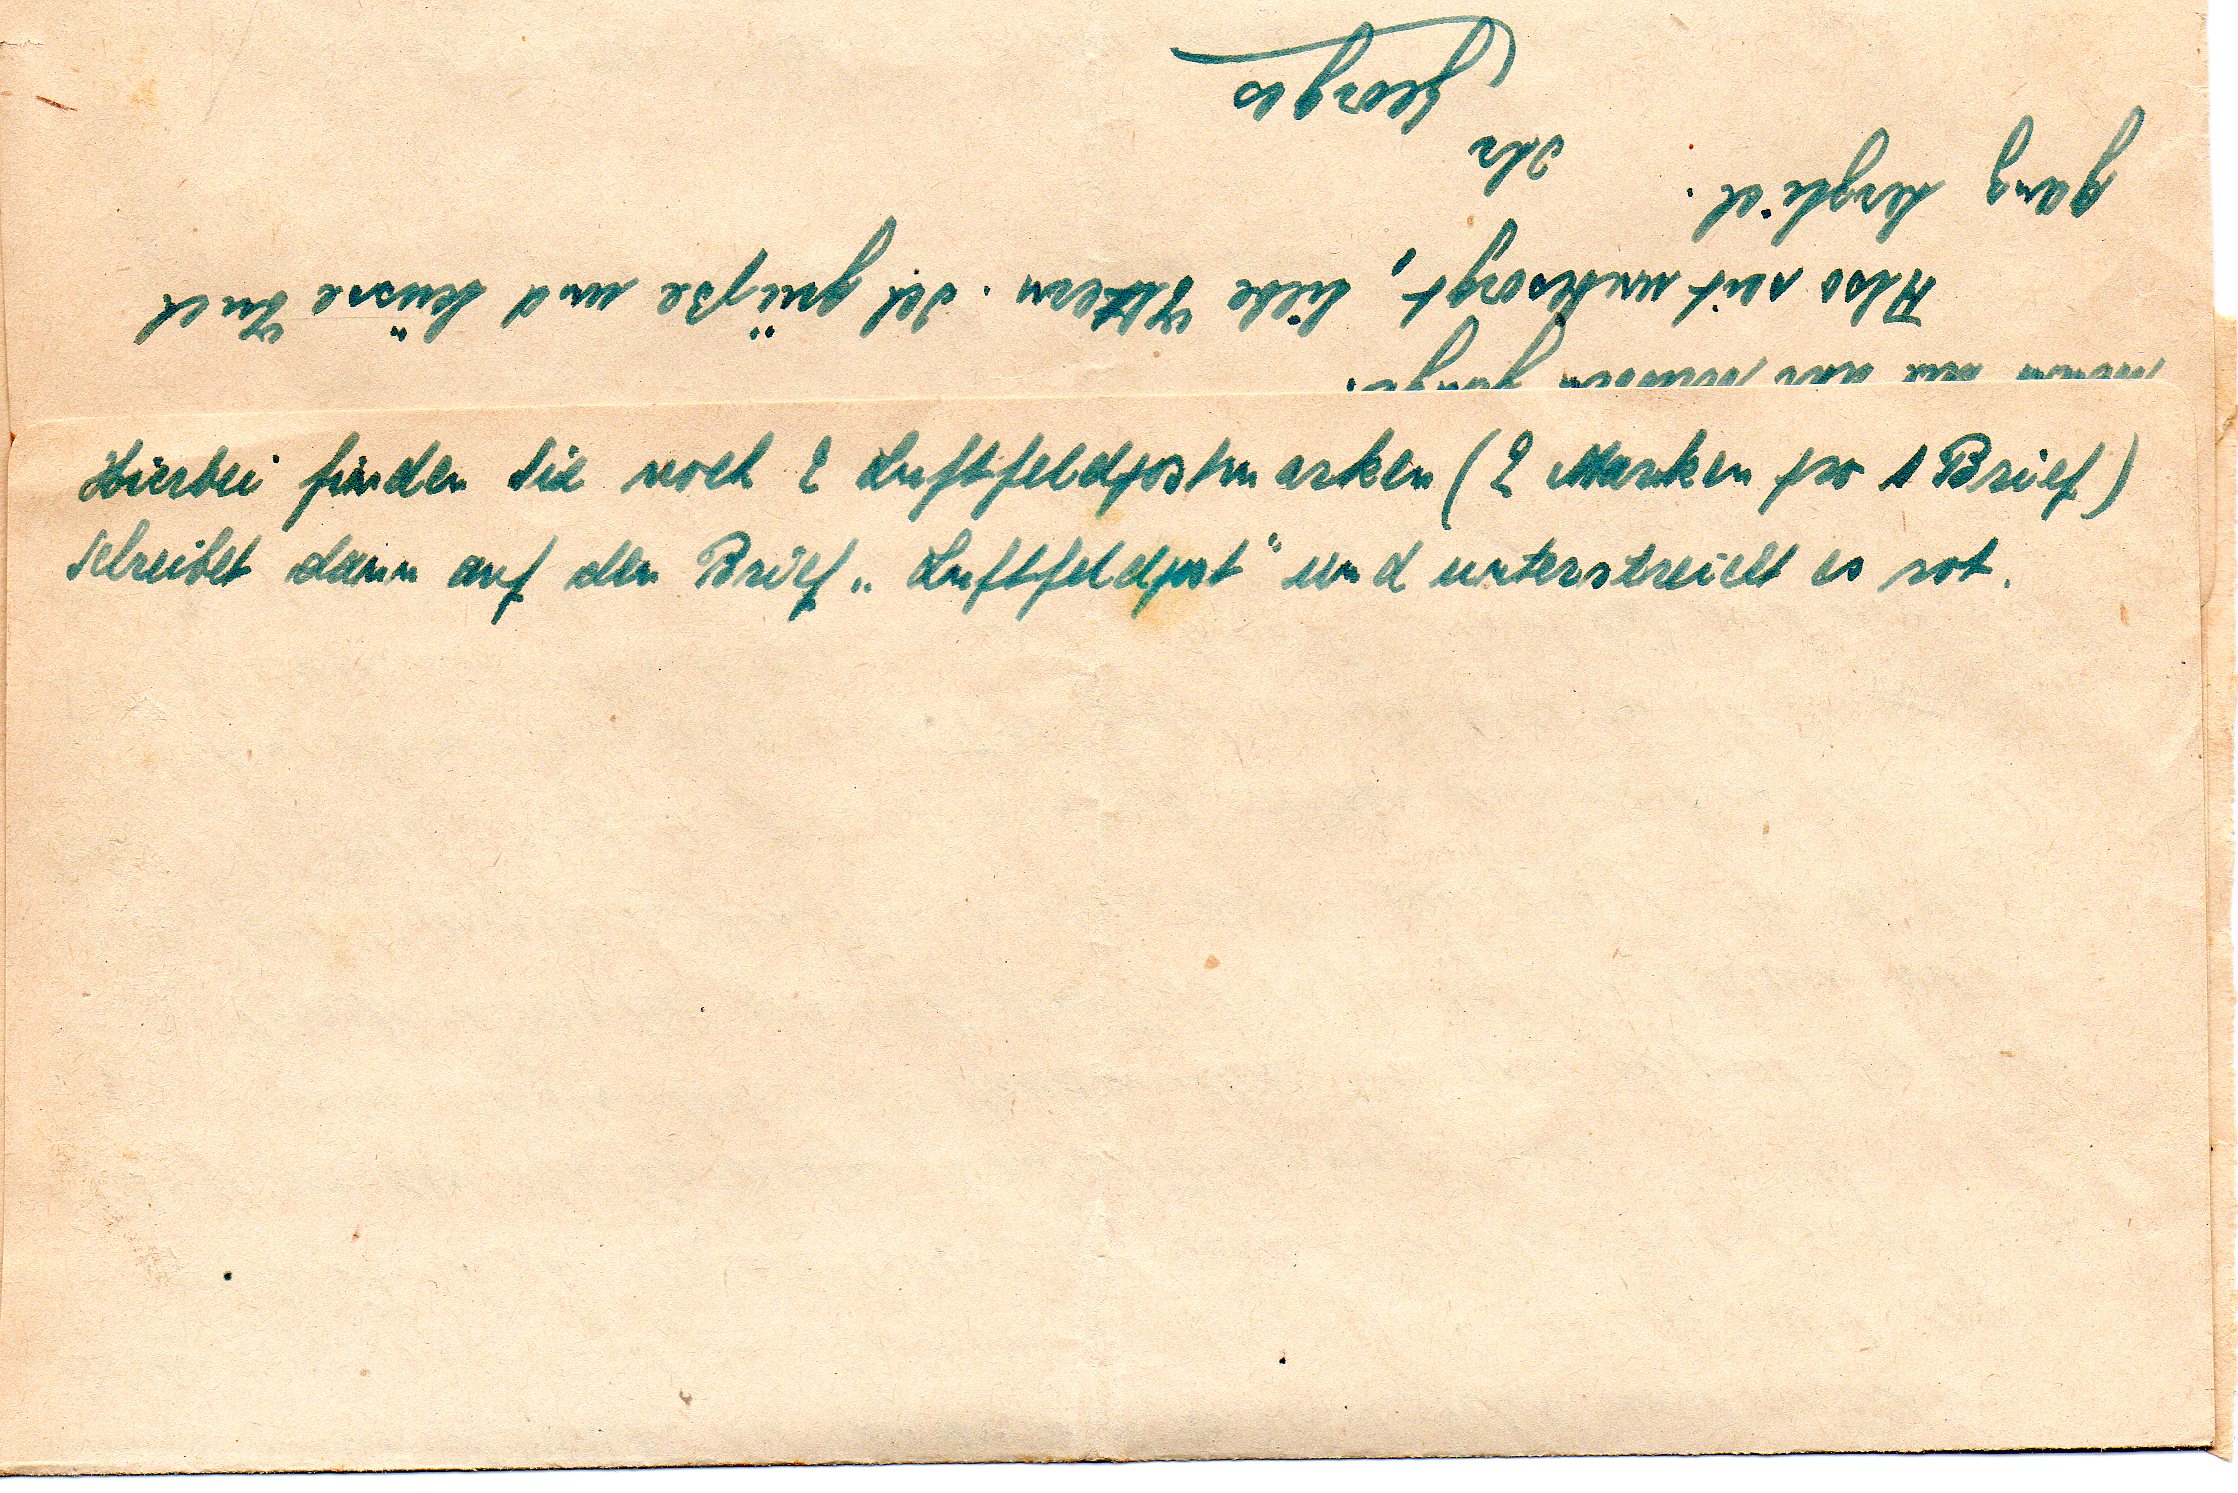 Hierbei finden Sie noch 2 Luftfeldpostmarken (2 Marken pro 1 Brief)
schreibet dann auf den Brief „Luftfeldpost" und unterstreicht es rot.
Also seit unbesorgt, liebe Eltern. Ich grüße und küsse Euch
ganz herzlich.
Ihr
Georges